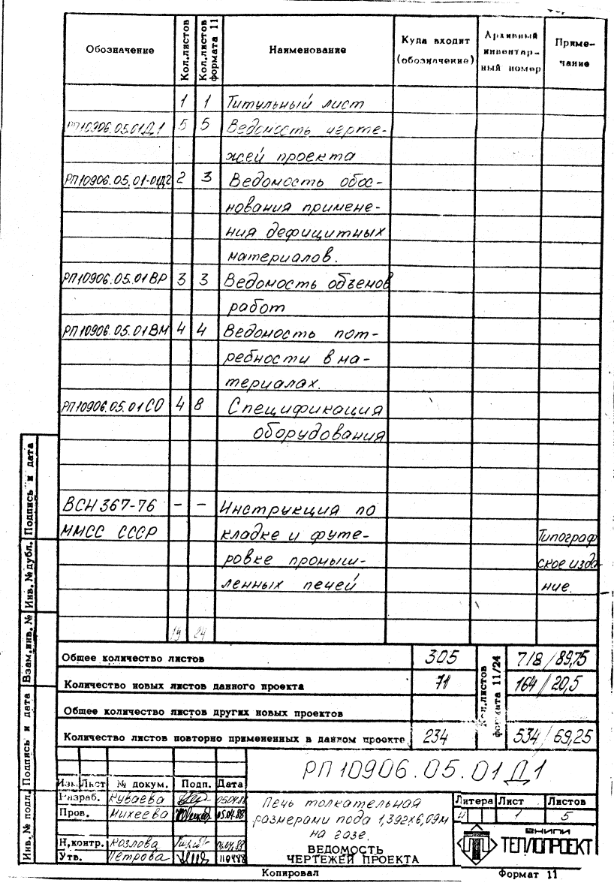 Обозначение Кол.листов Кол.листов формата 11 Наименование Куда входит (обозначение) Архивный инвентарный номер Примечание
1 1 Титульный лист
РП10906.05.01Д1 5 5 Ведомость черте-
жей проекта
РП10906.05.01-01Д2 2 3 Ведомость обос-
нования примене-
ния дефицитных
материалов.
РП10906.05.01ВР 3 3 Ведомость объемов
работ
РП10906.05.01ВМ 4 4 Ведомость пот-
ребности в ма-
териалах.
РП10906.05.01СО 4 8 Спецификация
оборудования
ВСН 367-76 – – Инструкция по
ММСС СССР кладке и футе- Типограф
ровке промыш- ское изда
ленных печей ние.
19 24
Общее количество листов 305 Кол.листов формата 11/24 718/89,75
Количество новых листов данного проекта 71 164/20,5
Общее количество листов других новых проектов
Количество листов повторно примененных в данном проекте 234 534/69,25
Инв. № подл. Подпись и дата Взам.инв. № Инв. № дубл. Подпись и дата
РП 10906.05.01Д1
Изм. Лист № докум. Подп. Дата
Разраб. Куваева 05.04.88
Пров. Михеева 05.04.88
Н.контр. Козлова
Утв. Петрова 11.04.88
Печь толкательная
размерами пода 1,392х6,09м
на газе.
ВЕДОМОСТЬ
ЧЕРТЕЖЕЙ ПРОЕКТА
Литера Лист Листов
И 1 5
ВНИПИ
ТЕПЛОПРОЕКТ
Копировал Формат 11